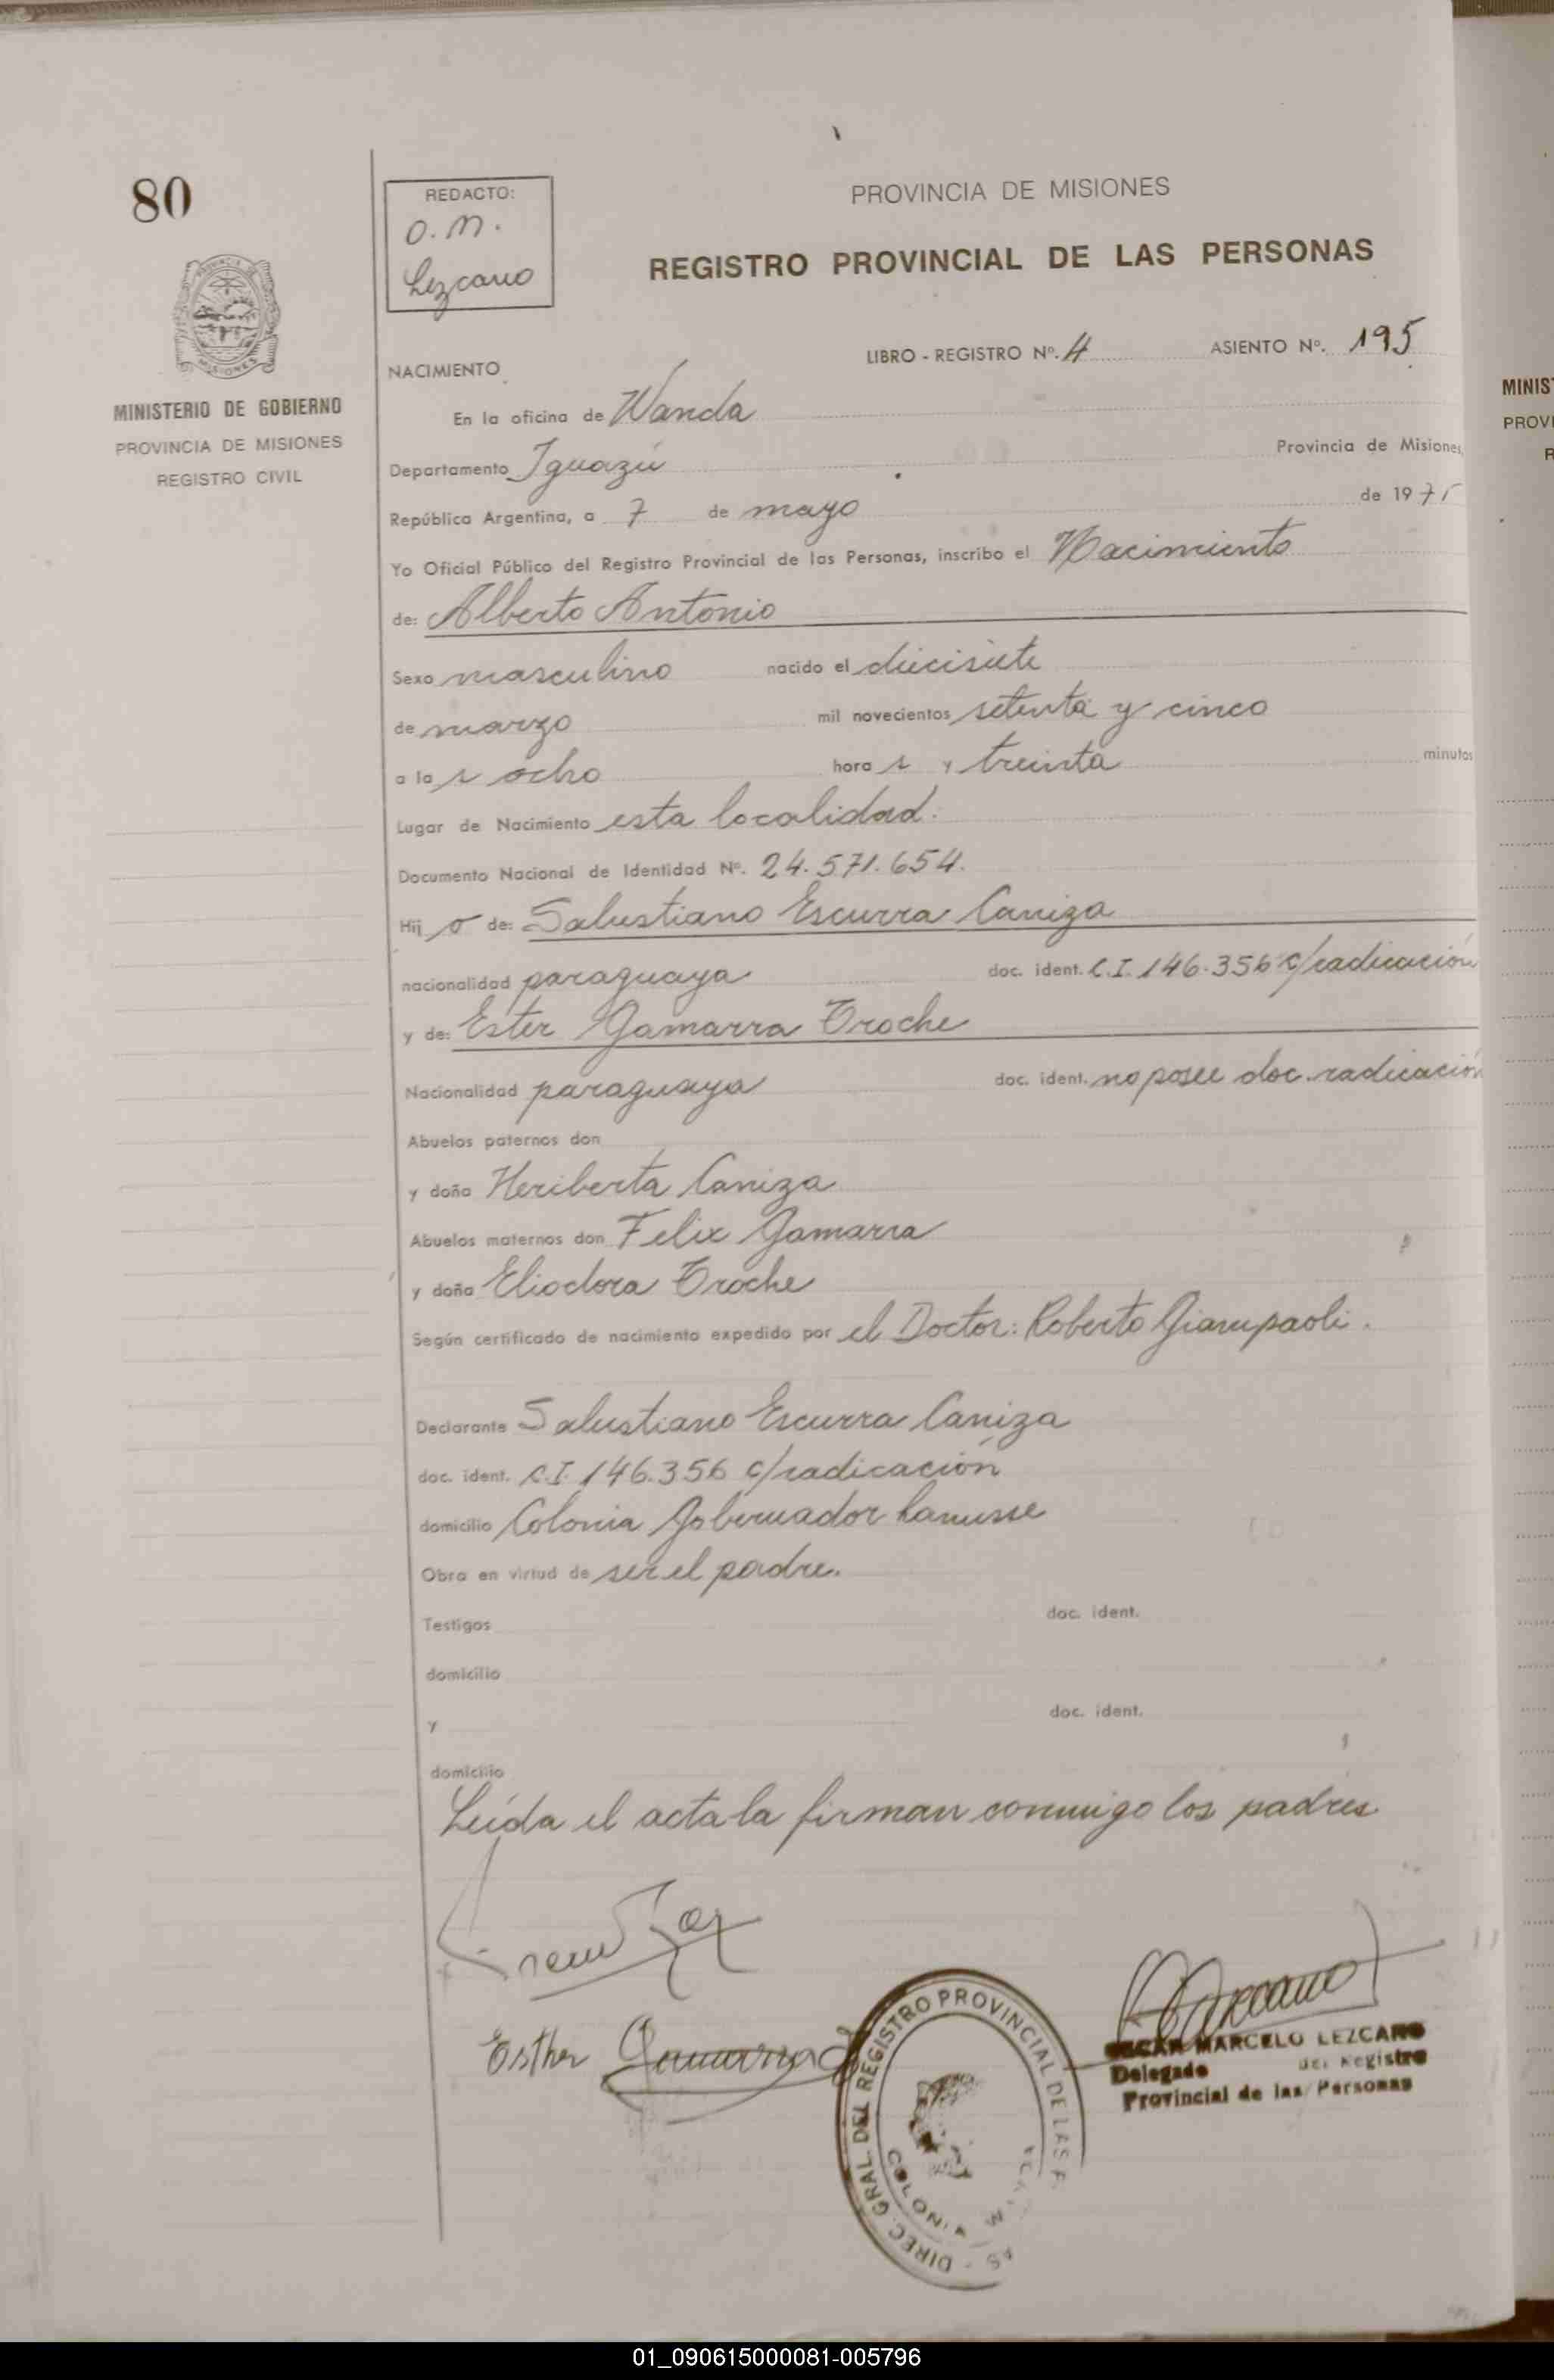 80
REDACTO:
O.M.
Lezcano
PROVINCIA DE MISIONES
REGISTRO PROVINCIAL DE LAS PERSONAS
MINISTERIO DE GOBIERNO
PROVINCIA DE MISIONES
REGISTRO CIVIL
LIBRO - REGISTRO Nº. 4 ASIENTO Nº. 195
NACIMIENTO
En la oficina de Wanda
Departamento Iguazú Provincia de Misiones,
República Argentina, a 7 de mayo de 1975
Yo Oficial Público del Registro Provincial de las Personas, inscribo el Nacimiento
de: Alberto Antonio
Sexo masculino nacido el diecisiete
de marzo mil novecientos setenta y cinco
a la s ocho hora s y treinta minutos
Lugar de Nacimiento esta localidad.
Documento Nacional de Identidad Nº. 24.571.654.
Hij o de: Salustiano Escurra Caniza
nacionalidad paraguaya doc. ident. C.I. 146.356 c/radicación
y de: Ester Gamarra Troche
Nacionalidad paraguaya doc. ident. no posee doc. radicación
Abuelos paternos don
y doña Heriberta Caniza
Abuelos maternos don Felix Gamarra
y doña Eliodora Troche
Según certificado de nacimiento expedido por el Doctor: Roberto Giampaoli.
Declarante Salustiano Escurra Caniza
doc. ident. C.I. 146.356 c/radicación
domicilio Colonia Gobernador Lanusse
Obra en virtud de ser el padre.
Testigos doc. ident.
domicilio
y doc. ident.
domicilio
Leída el acta la firman conmigo los padres
Esther Gamarra
DIREC. GRAL. DEL REGISTRO PROVINCIAL DE LAS P
COLONIA W
OSCAR MARCELO LEZCANO
Delegado del Registro
Provincial de las Personas
MINIS
PROVI
R
01_090615000081-005796